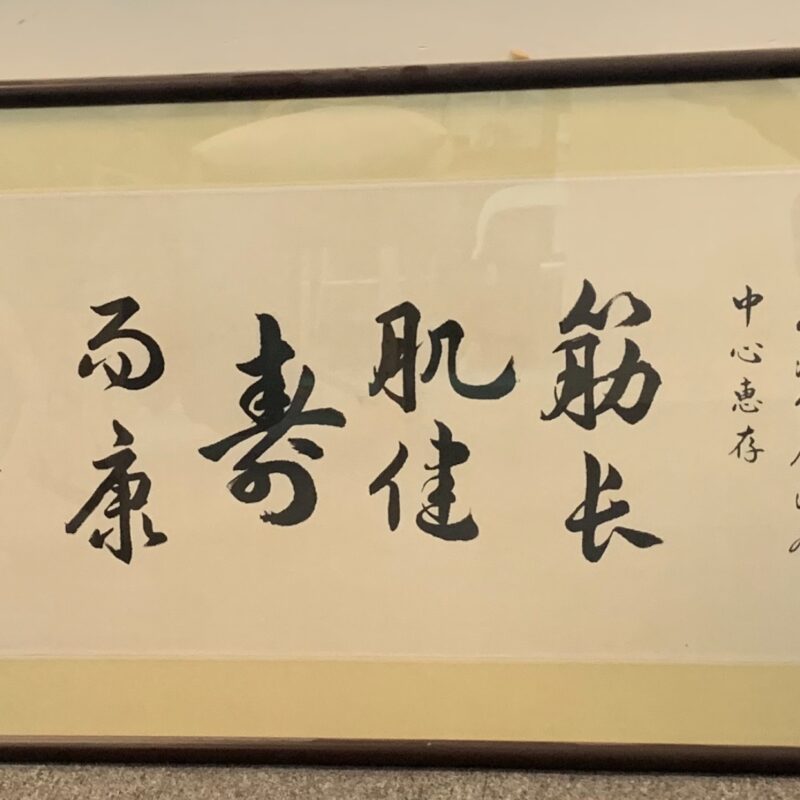 中心惠存
筋长
肌健
寿
而康